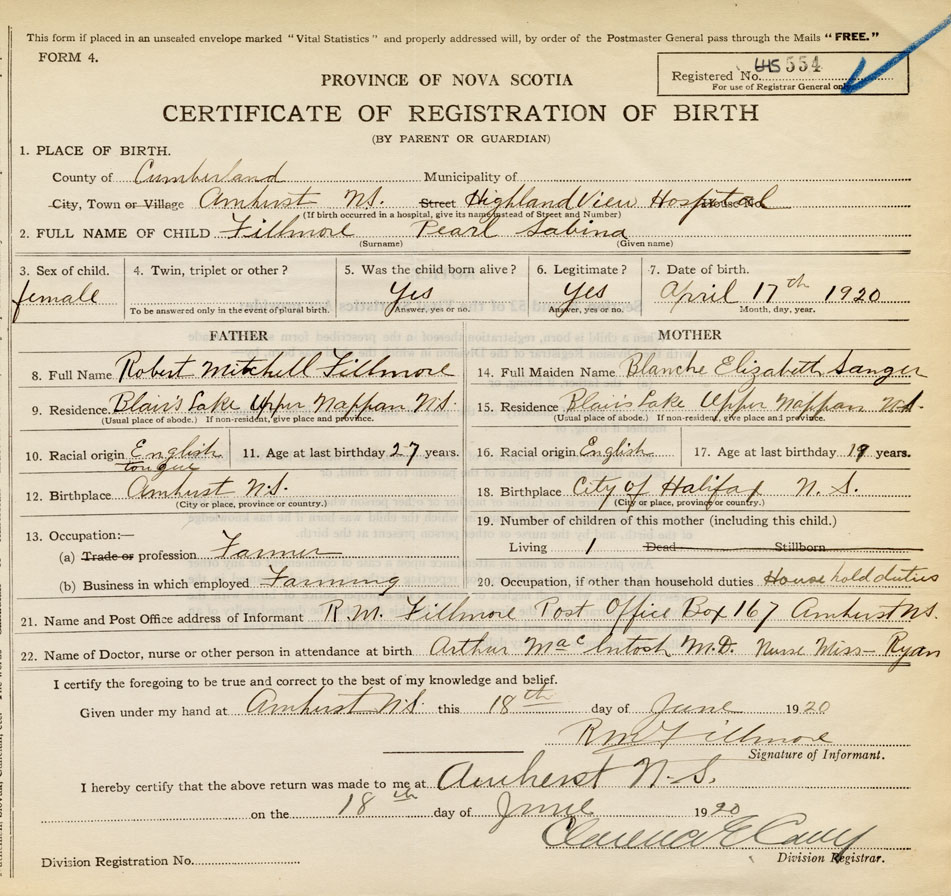 This form if placed in an unsealed envelope marked "Vital Statistics" and properly addressed will, by order of the Postmaster General pass through the Mails "FREE."
FORM 4.
Registered No. 554
For use of Registrar General only
PROVINCE OF NOVA SCOTIA
CERTIFICATE OF REGISTRATION OF BIRTH
(BY PARENT OR GUARDIAN)
1. PLACE OF BIRTH.
County of Cumberland Municipality of
City, Town or Village Amherst N.S. Street Highland View Hospital House No.
(If birth occurred in a hospital, give its name instead of Street and Number)
2. FULL NAME OF CHILD Fillmore Pearl Sabina
(Surname) (Given name)
3. Sex of child. 4. Twin, triplet or other? 5. Was the child born alive? 6. Legitimate? 7. Date of birth.
female Yes Yes April 17th 1920
To be answered only in the event of plural birth. Answer, yes or no. Answer, yes or no. Month, day, year.
FATHER MOTHER
8. Full Name Robert Mitchell Fillmore 14. Full Maiden Name Blanche Elizabeth Sanger
9. Residence. Blair's Lake Upper Nappan N.S. 15. Residence Blair's Lake Upper Nappan N.S.
(Usual place of abode.) If non-resident, give place and province. (Usual place of abode.) If non-resident, give place and province.
10. Racial origin English tongue 11. Age at last birthday 27 years. 16. Racial origin English 17. Age at last birthday 19 years.
12. Birthplace Amherst N.S. 18. Birthplace City of Halifax N.S.
(City or place, province or country.) (City or place, province or country.)
13. Occupation:— 19. Number of children of this mother (including this child.)
(a) Trade or profession Farmer Living 1 Dead Stillborn
(b) Business in which employed Farming 20. Occupation, if other than household duties House hold duties
21. Name and Post Office address of Informant R.M. Fillmore Post Office Box 167 Amherst N.S.
22. Name of Doctor, nurse or other person in attendance at birth Arthur MacIntosh M.D. Nurse Miss Ryan
I certify the foregoing to be true and correct to the best of my knowledge and belief.
Given under my hand at Amherst N.S. this 18th day of June 1920
R M Fillmore
Signature of Informant.
I hereby certify that the above return was made to me at Amherst N.S.
on the 18th day of June 1920
Clarence E
Division Registration No. Division Registrar.